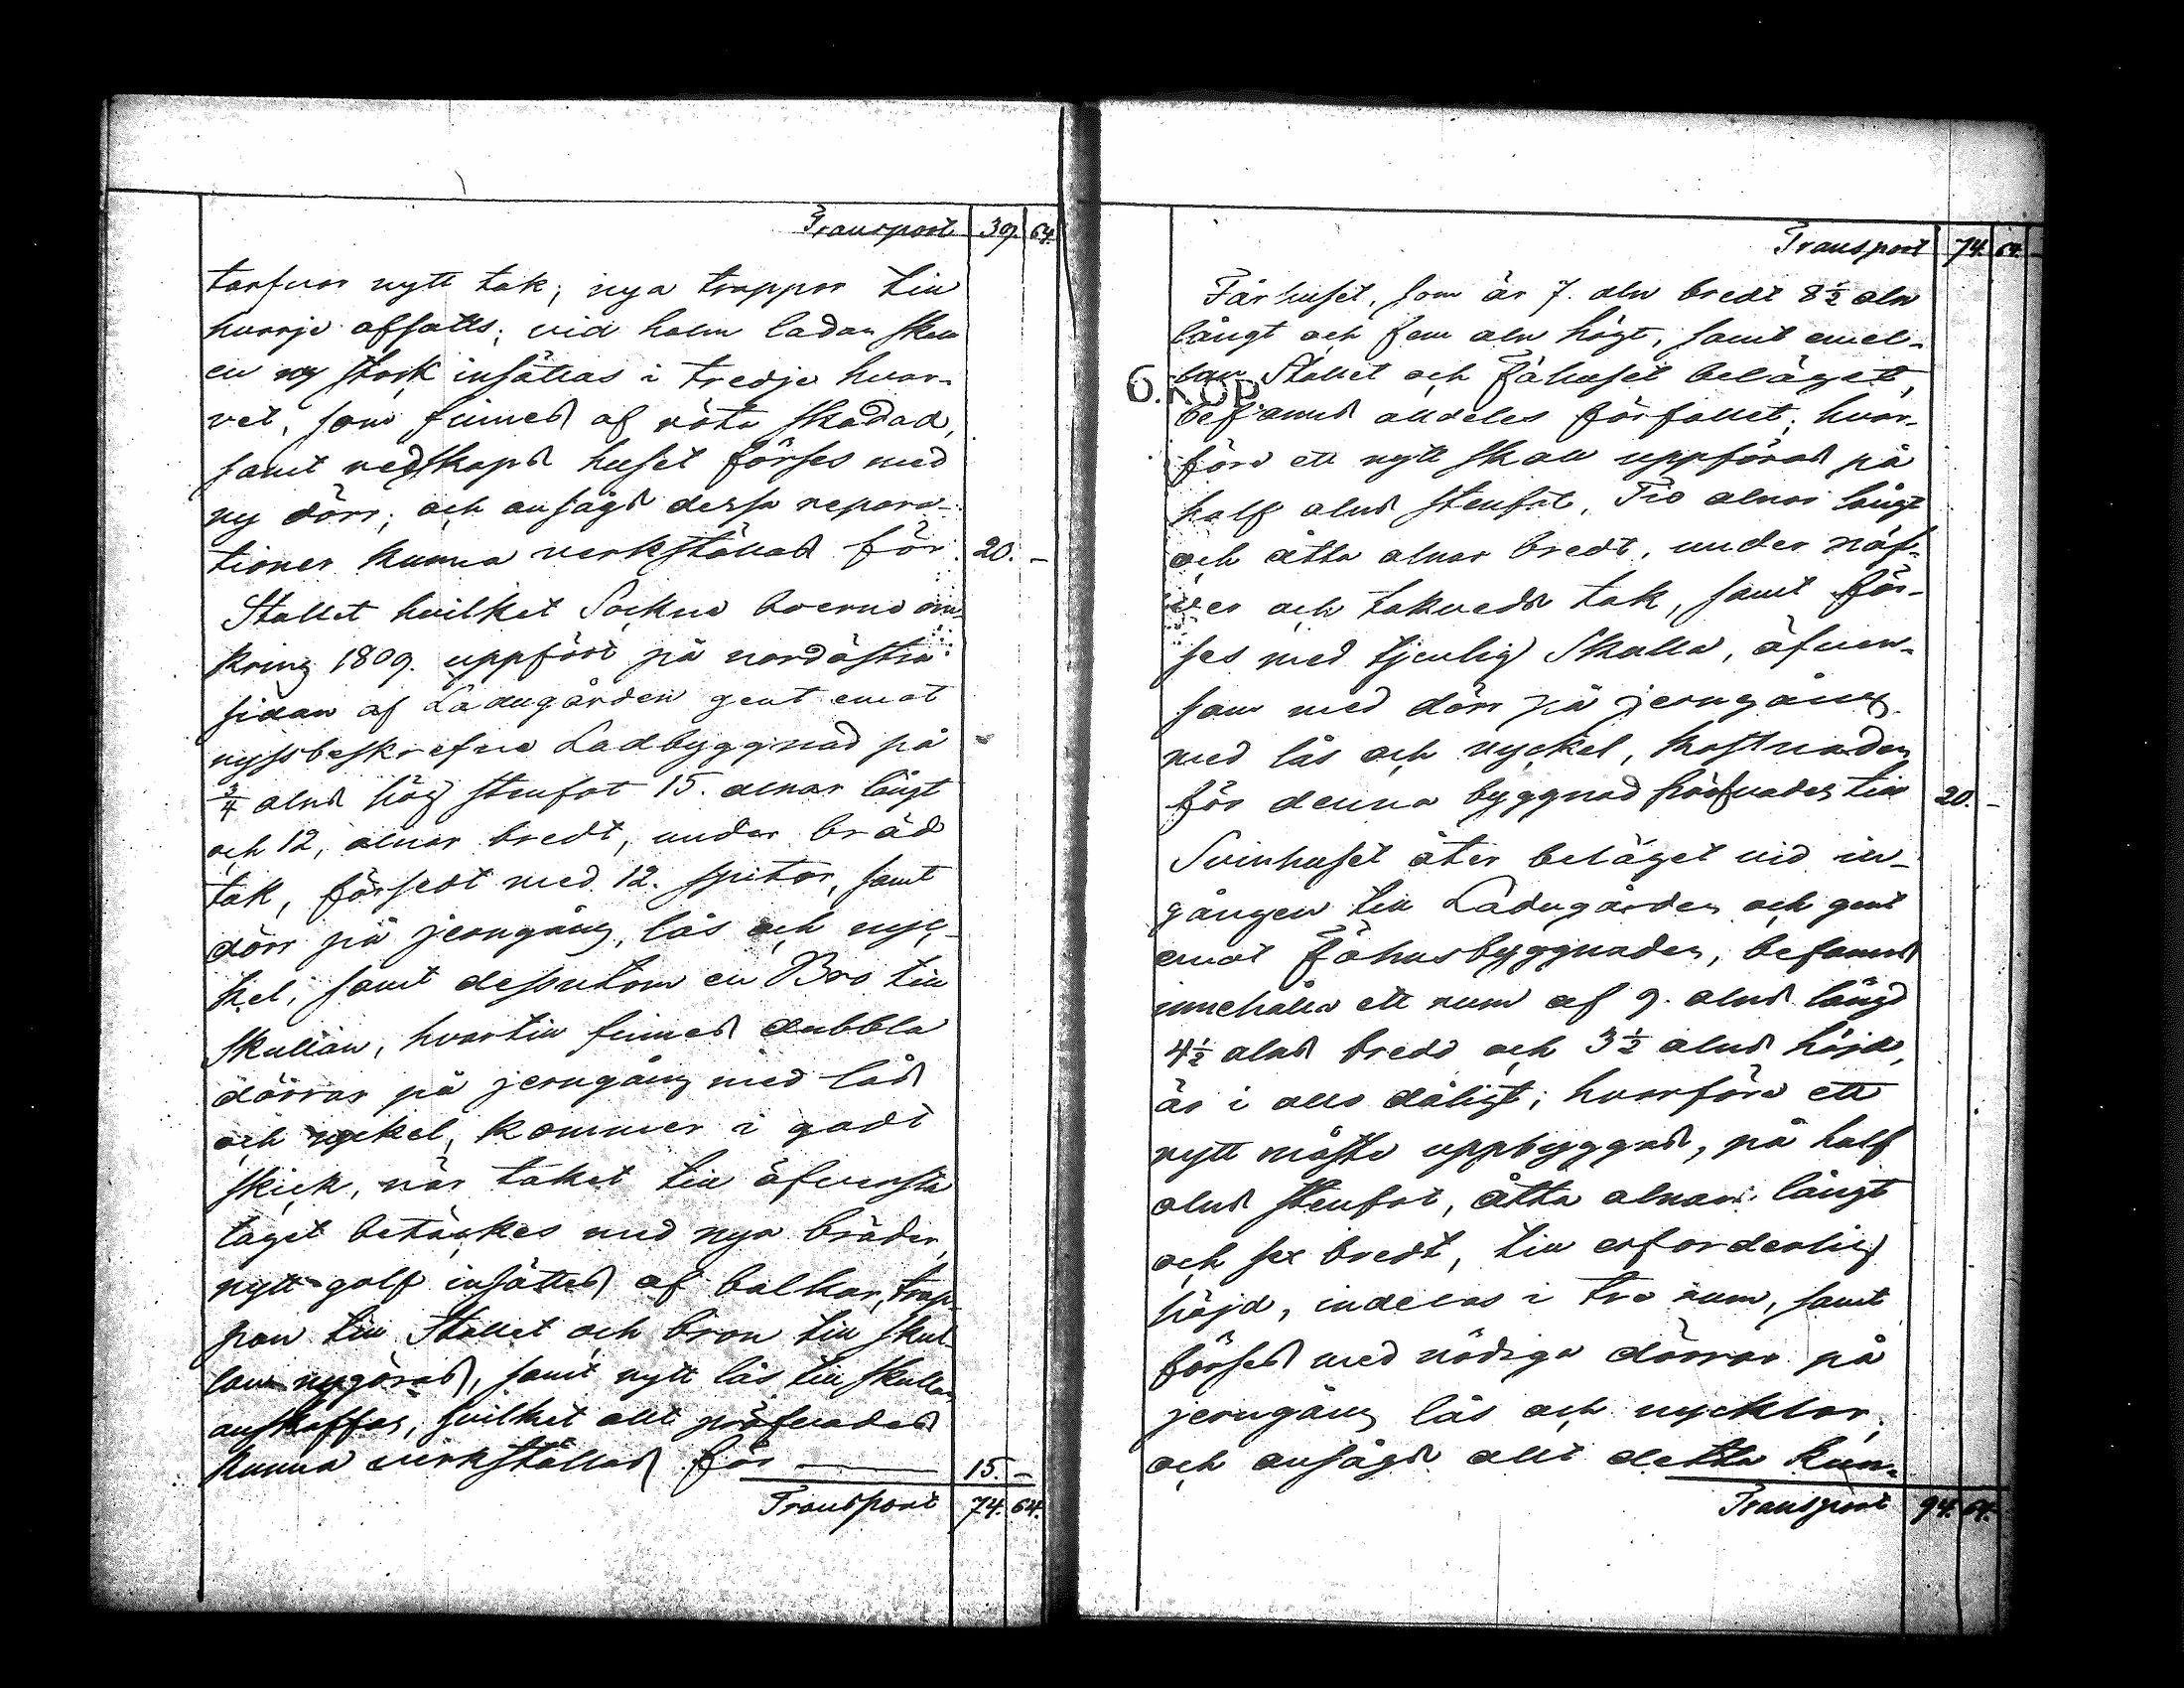 Transport 39. 64.
tarfvar nytt tak; nya trappor till
hvarje afsatts; vid halm ladan skall
en ny stock insättas i tredje hvar-
vet, som finnes af röta skadad,
samt redskaps huset förses med
ny dörr; och ansågs dessa repara-
tioner kunna verkställas för 20. -
Stallet hvilket Sockne boerne om-
kring 1809. uppfört på nordöstra
sidan af Ladugården gent emot
nyssbeskrefne Ladbyggnad på
3/4 alns hög stenfot 15. alnar långt
och 12, alnar bredt, under bräd
tak, försedt med 12. spiltor, samt
dörr på jerngång, lås och nyc-
kel, samt dessutom en Bro till
Skullan, hvartill finnes dubbla
dörrar på jerngång med lås
och nyckel, kommer i godt
skick, när taket till öfversta
taget betäckes med nya bräder,
nytt golf insättes af balkar, trap-
pan till Stallet och bron till skul-
lan nygöras, samt nytt lås till skullan
anskaffas, hvilket allt pröfvades
kunna verkställas för 15. -
Transport 74. 64.
Transport 74. 64.
Fårhuset, som är 7. aln bredt 8 1/2 aln
långt och fem aln högt, samt emel-
lan Stallet och Fähuset beläget,
6. KOP.
befanns alldeles förfallet; hvar-
före ett nytt skall uppföras på
half alns stenfot, Tio alnar långt
och åtta alnar bredt, under näf-
ver och takveds tak, samt för-
ses med tjenlig Skulla, äfven-
som med dörr på jerngång
med lås och nyckel, kostnaden
för denna byggnad pröfvades till 20. -
Svinhuset åter beläget vid in-
gången till Ladugården och gent
emot Fähusbyggnaden, befanns
innehålla ett rum af 9. alns längd
4 1/2 alns bredd och 3 1/2 alns höjd,
är i allo dåligt; hvarföre ett
nytt måste uppbyggas, på half
alns stenfot, åtta alnar långt
och sex bredt, till erforderlig
höjd, indelas i tre rum, samt
förses med nödiga dörrar på
jerngång lås och nycklar,
och ansågs allt detta kun-
Transport 94. 64.